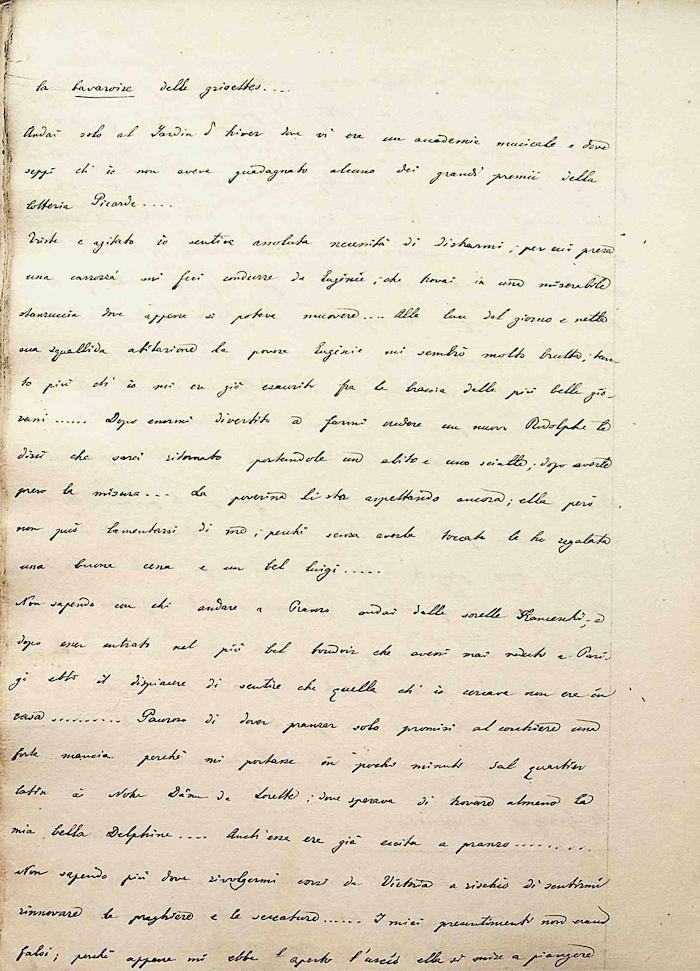 la bavaroise delle grisettes....
Andai solo al Jardin d'hiver dove vi era un accademia musicale e dove
seppi ch'io non aveva guadagnato alcuno dei grandi premii della
lotteria Picarde....
Triste e agitato io sentiva assoluta necessità di distrarmi; per cui presa
una carrozza mi feci condurre da Eugénie, che trovai in una miserabile
stanzuccia dove appena si poteva muovere.... Alla luce del giorno e nella
sua squallida abitazione la povera Eugénie mi sembrò molto brutta, tan-
to più ch'io mi era già esaurito fra le braccia delle più belle gio-
vani...... Dopo essermi divertito a farmi credere un nuovo Rudolphe le
dissi che sarei ritornato portandole un abito e uno scialle, dopo averle
preso la misura... La poverina li sta aspettando ancora; ella però
non può lamentarsi di me, perchè senza averla toccata le ho regalata
una buona cena e un bel luigi.....
Non sapendo con chi andare a Pranzo andai dalle sorelle Franceschi, e
dopo esser entrato nel più bel boudoir che avessi mai veduto a Pari-
gi ebbi il dispiacere di sentire che quella ch'io cercava non era in
casa......... Pauroso di dover pranzar solo promisi al cocchiere una
forte mancia perchè mi portasse in pochi minuti dal quartier
latin à Notre Dame de Lorette; dove sperava di trovare almeno la
mia bella Delphine.... Anch'essa era già uscita a pranzo.........
Non sapendo più dove rivolgermi corsi da Victoria a rischio di sentirmi
rinnovare le preghiere e le seccature...... I miei presentimenti non erano
falsi; perchè appena mi ebbe aperto l'uscio ella si mise a piangere